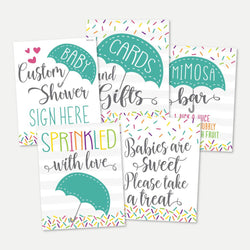 BABY
Custom
Shower
SIGN HERE
CARDS
and
Gifts
MIMOSA
bar
SPRINKLED
with love
Babies are
sweet
Please take
a treat